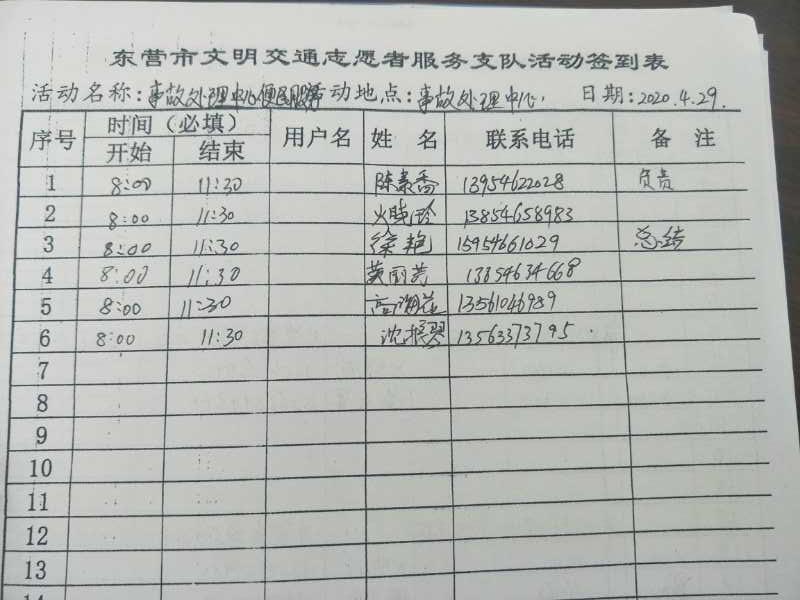 东营市文明交通志愿者服务支队活动签到表
活动名称:事故处理中心便民服务 活动地点:事故处理中心. 日期:2020.4.29.
序号 时间（必填） 用户名 姓 名 联系电话 备 注
开始 结束
1 8:00 11:30 陈素香 13954622028 负责
2 8:00 11:30 火晓玲 13854658983
3 8:00 11:30 徐艳 15954661029 总结
4 8:00 11:30 黄丽芳 13854634668
5 8:00 11:30 13561046989
6 8:00 11:30 沈振琴 13563373795.
7
8
9
10
11
12
13
14